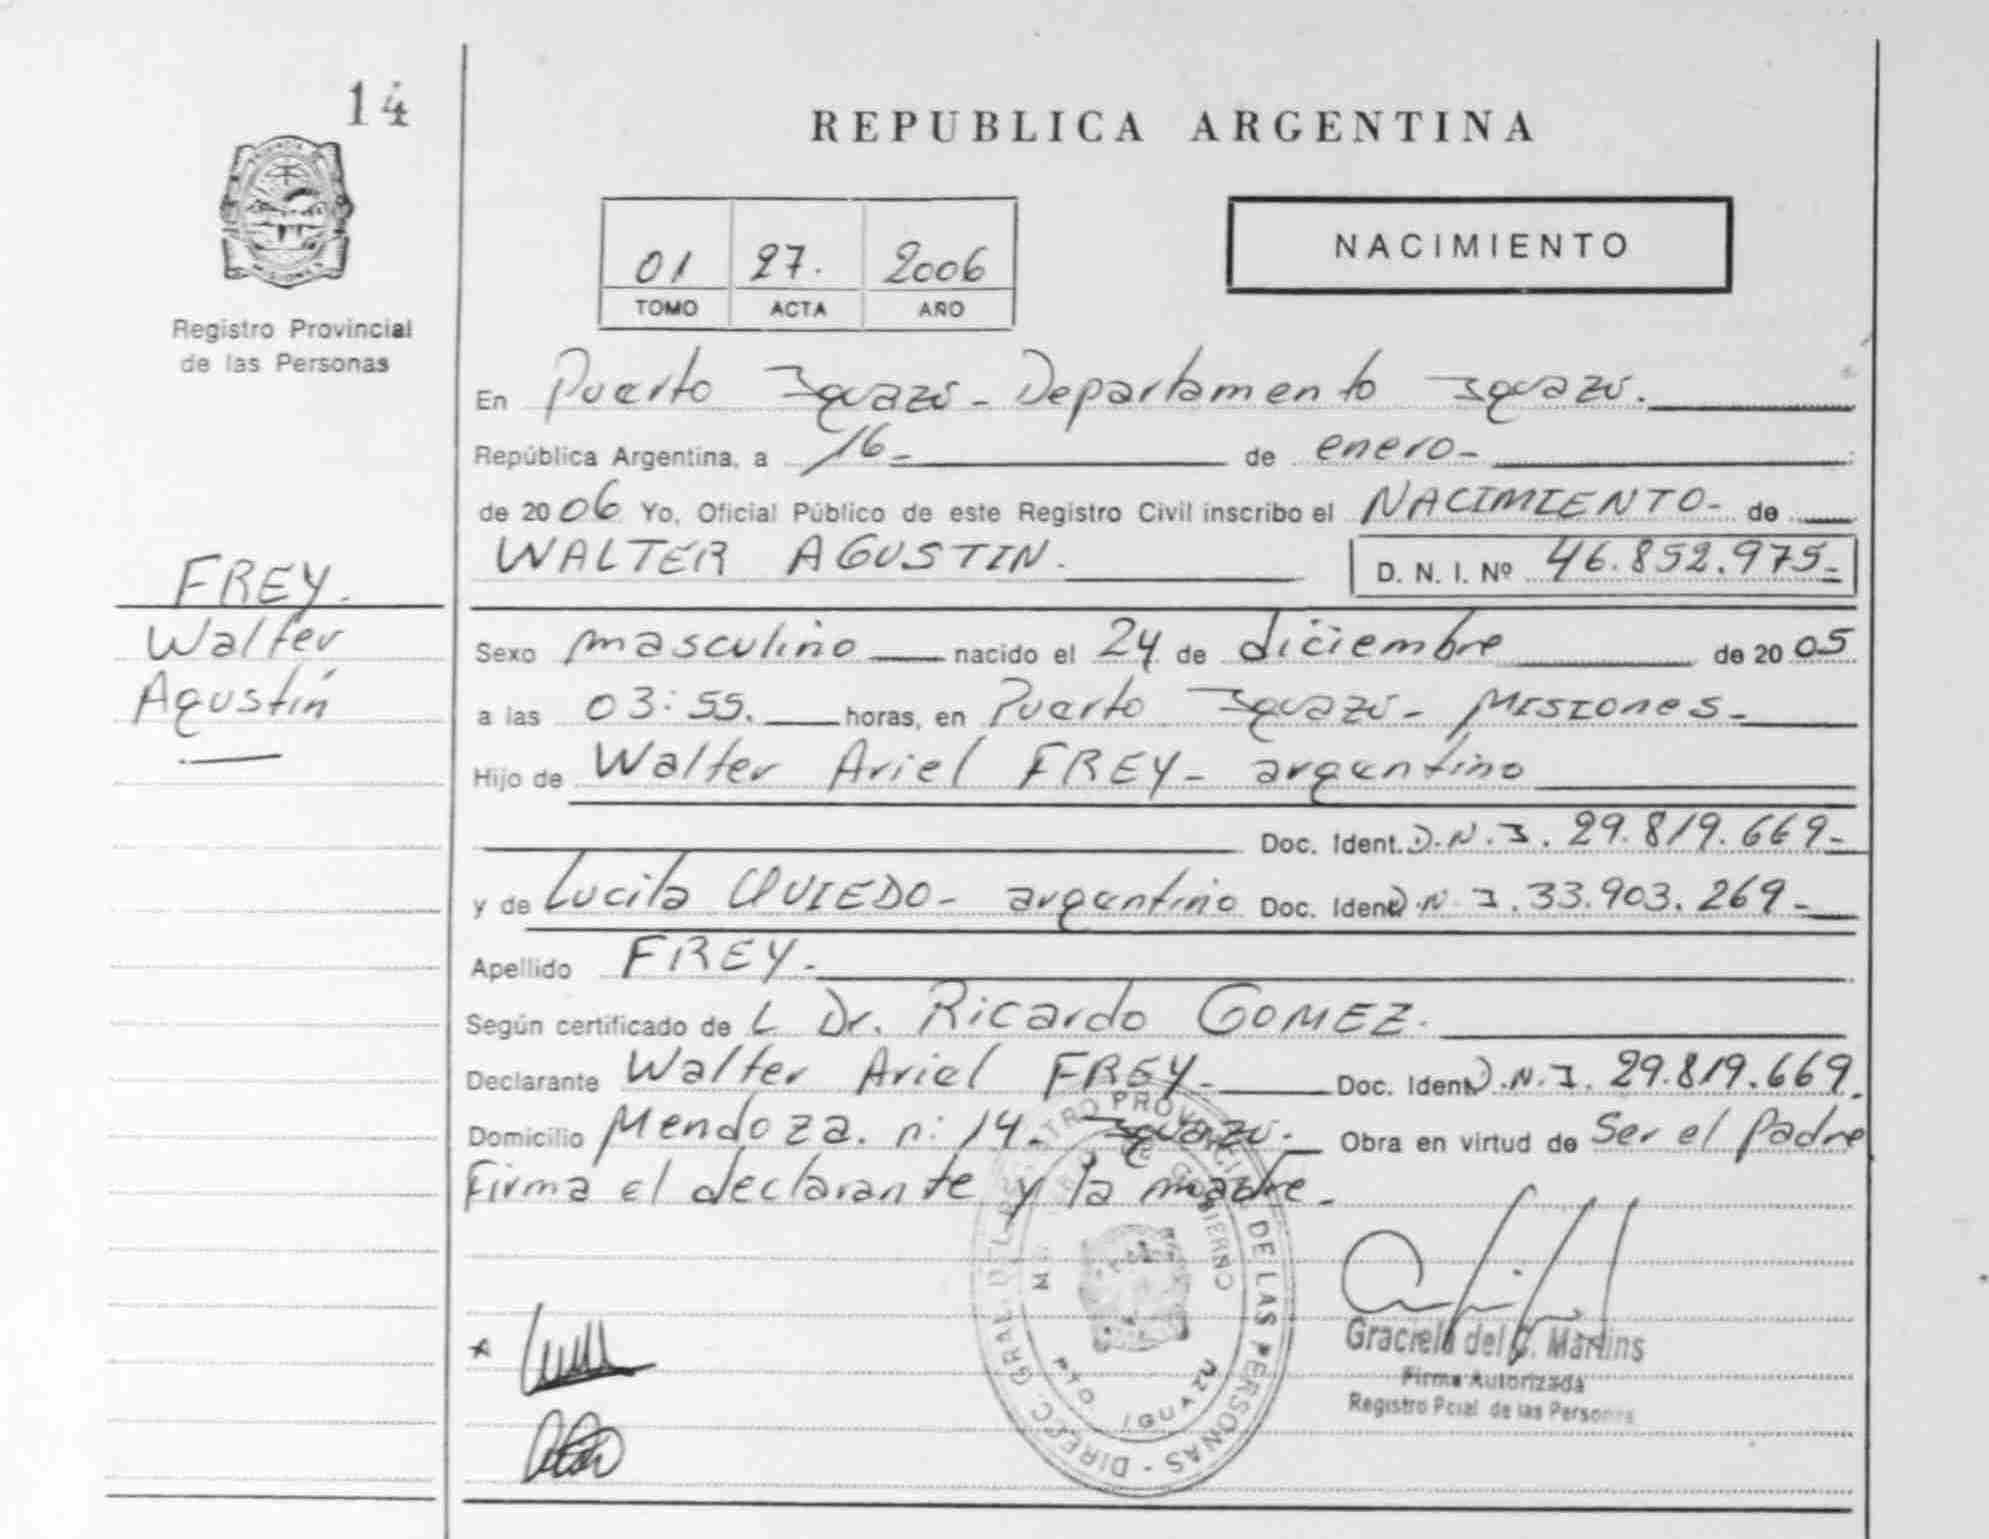 14
REPUBLICA ARGENTINA
NACIMIENTO
01 27. 2006
TOMO ACTA AÑO
Registro Provincial
de las Personas
En Puerto Iguazú - Departamento Iguazú.
República Argentina, a 16 - de enero -
de 2006 Yo, Oficial Público de este Registro Civil inscribo el NACIMIENTO - de
WALTER AGUSTIN. D. N. I. Nº 46.852.975 -
FREY.
Walter
Agustín
Sexo masculino nacido el 24 de diciembre de 2005
a las 03:55. horas, en Puerto Iguazú - Misiones -
Hijo de Walter Ariel FREY - argentino
Doc. Ident. D.N.I. 29.819.669 -
y de Lucila OVIEDO - argentino Doc. Ident. D.N.I. 33.903.269 -
Apellido FREY -
Según certificado de L Dr. Ricardo GOMEZ.
Declarante Walter Ariel FREY - Doc. Ident. D.N.I. 29.819.669.
Domicilio Mendoza. n: 14 - Iguazú. Obra en virtud de Ser el Padre
Firma el declarante y la madre -
DIRECC. GRAL DEL REGISTRO PROVINCIAL DE LAS PERSONAS -
GOBIERNO
PTO IGUAZU
Graciela del C. Martins
Firma Autorizada
Registro Pcial de las Personas